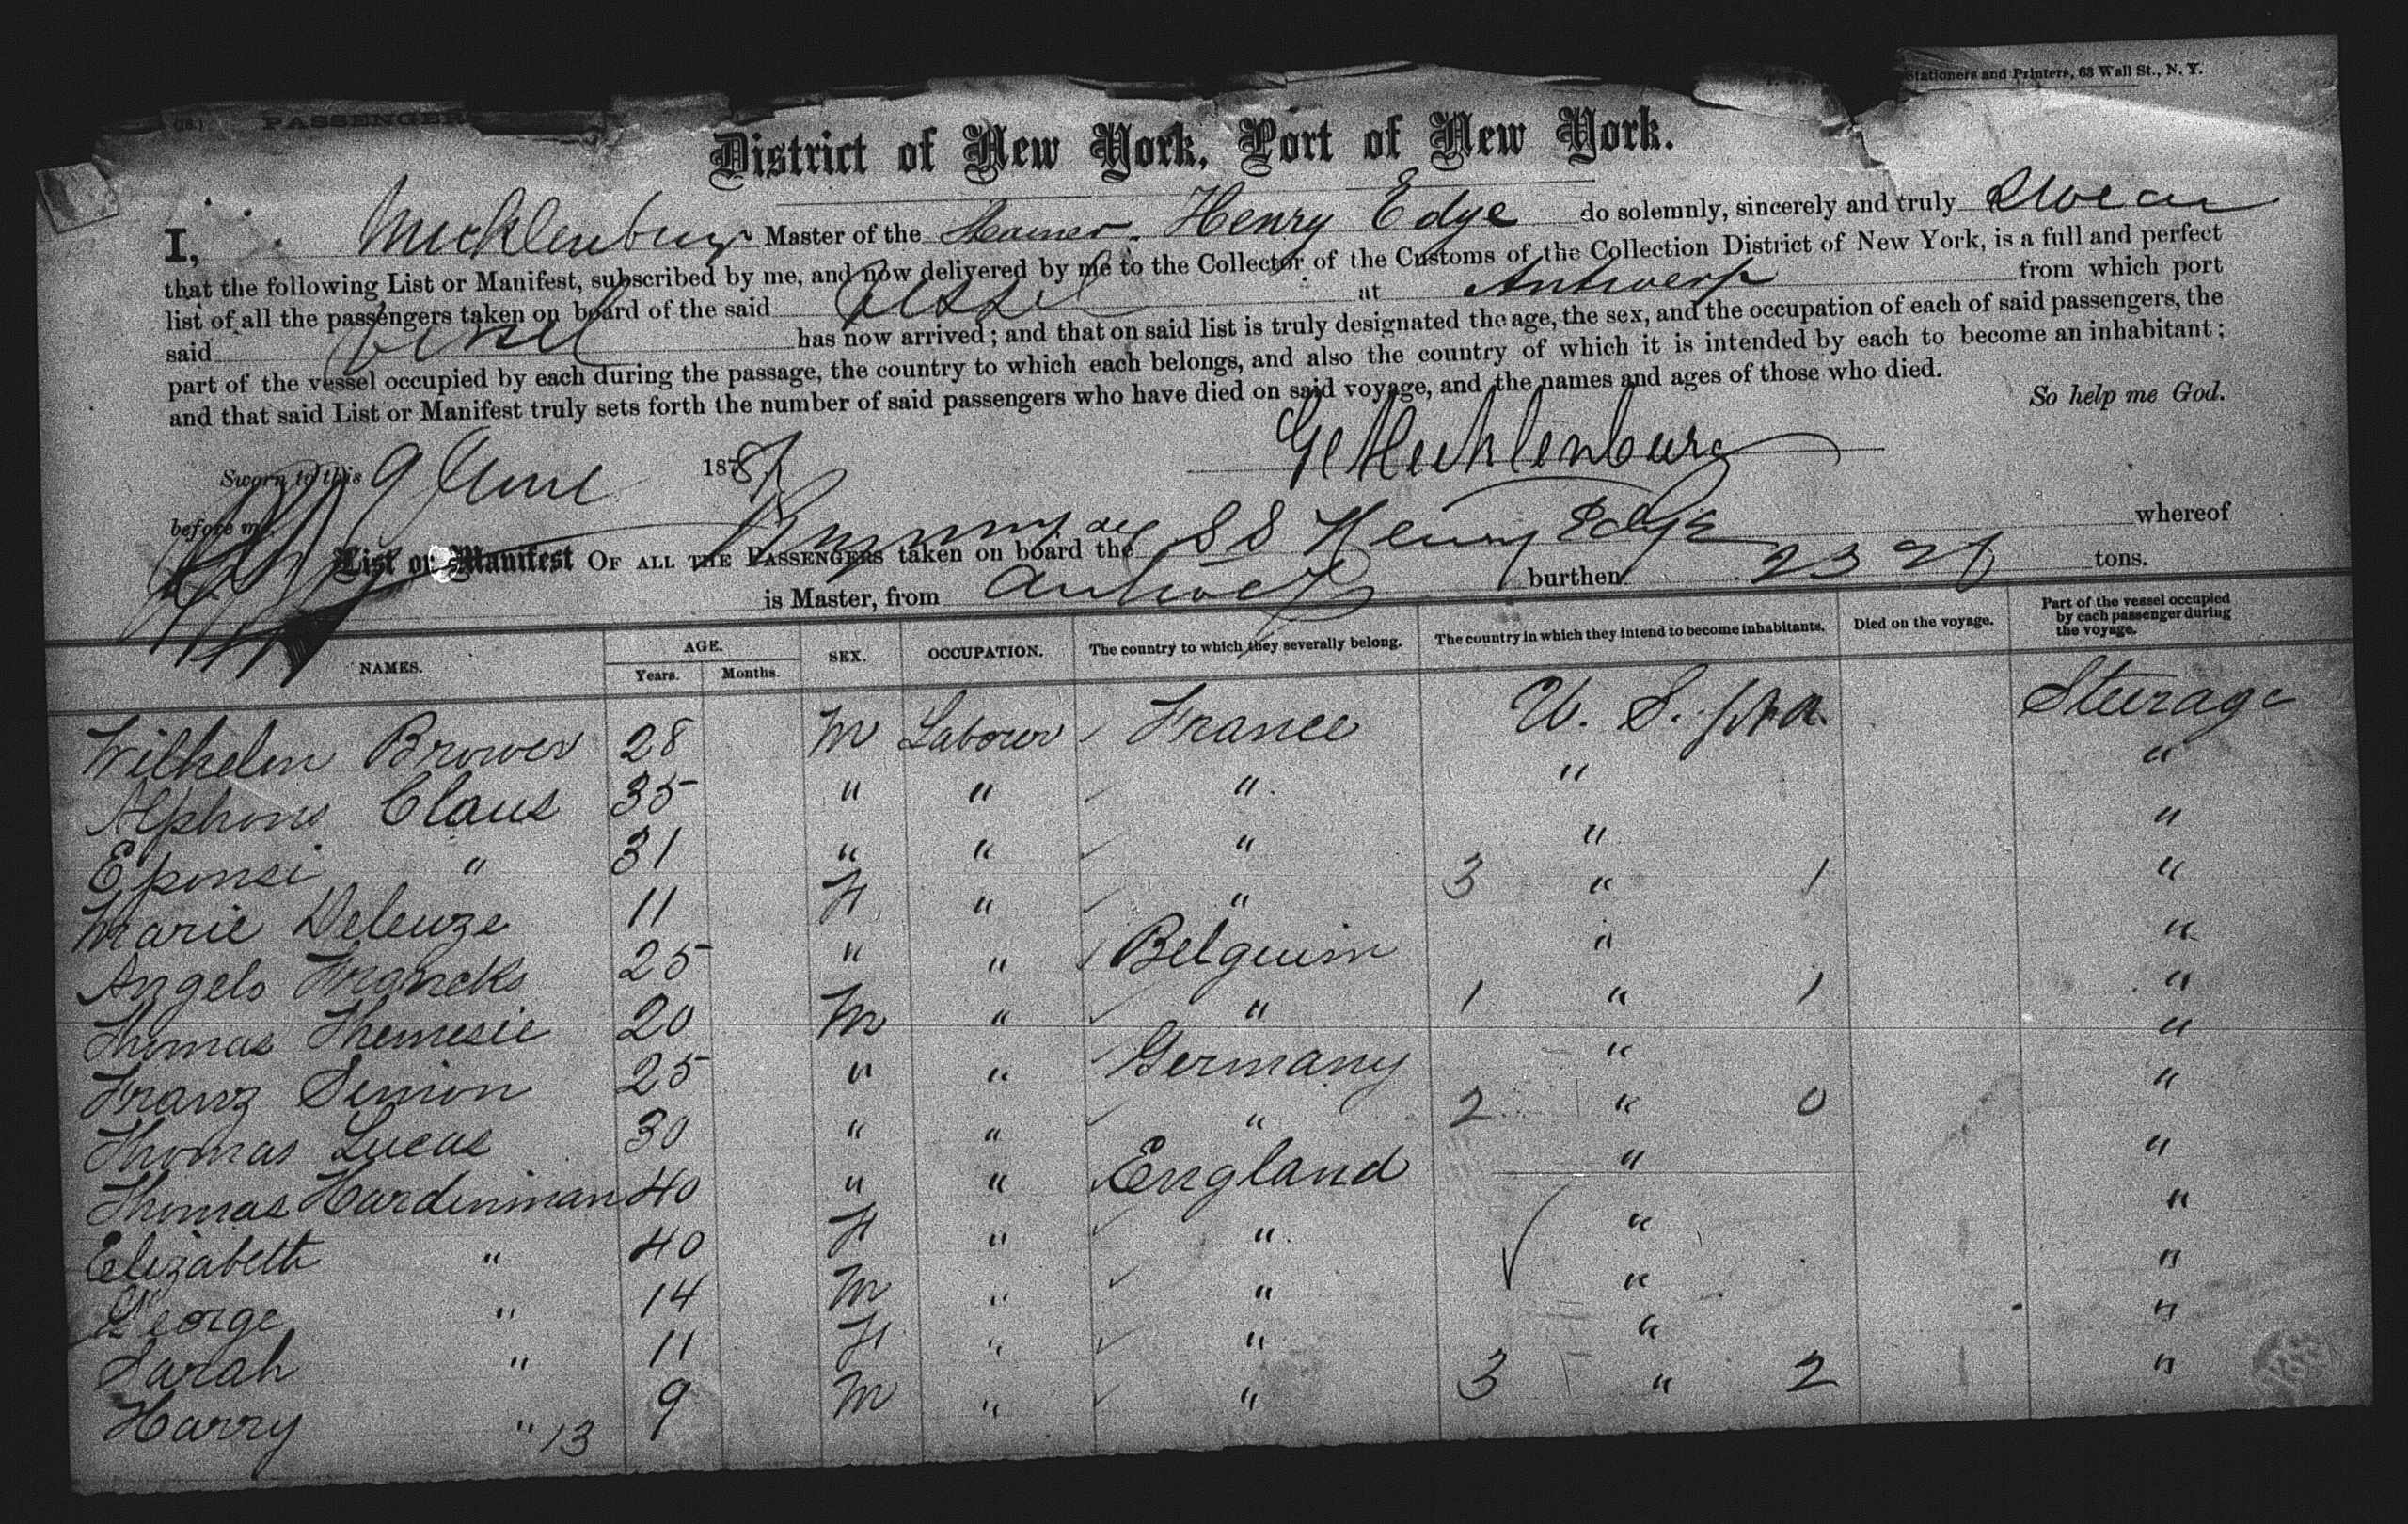 (18.) PASSENGER Stationers and Printers, 63 Wall St., N. Y.
District of New York, Port of New York.
I, Mecklenburg Master of the Steamer Henry Edye do solemnly, sincerely and truly Swear
that the following List or Manifest, subscribed by me, and now delivered by me to the Collector of the Customs of the Collection District of New York, is a full and perfect
list of all the passengers taken on board of the said Vessel at Antwerp from which port
said Vessel has now arrived; and that on said list is truly designated the age, the sex, and the occupation of each of said passengers, the
part of the vessel occupied by each during the passage, the country to which each belongs, and also the country of which it is intended by each to become an inhabitant;
and that said List or Manifest truly sets forth the number of said passengers who have died on said voyage, and the names and ages of those who died.
So help me God.
Sworn to this 9 June 188 G Mecklenburg
before me
List or Manifest OF ALL THE PASSENGERS taken on board the SS Henry Edye whereof
is Master, from Antwerp burthen tons.
NAMES. AGE. Years. Months. SEX. OCCUPATION. The country to which they severally belong. The country in which they intend to become inhabitants. Died on the voyage. Part of the vessel occupied by each passenger during the voyage.
Wilhelm Brower 28 M Labourer France U. S. Steerage
Alphons Claus 35 " " " " "
Eponsi " 31 " " " " "
Marie Deleuze 11 F " " 3 " 1 "
Angelo Francks 25 " " Belguim " "
Thomas Themesie 20 M " " 1 " 1 "
Franz Simon 25 " " Germany " "
Thomas Lucas 30 " " " 2 " 0 "
Thomas Hardinman 40 " " England " "
Elizabeth " 40 F " " " "
George " 14 M " " " "
Sarah " 11 F " " " "
Harry " 13 9 M " " 3 " 2 "